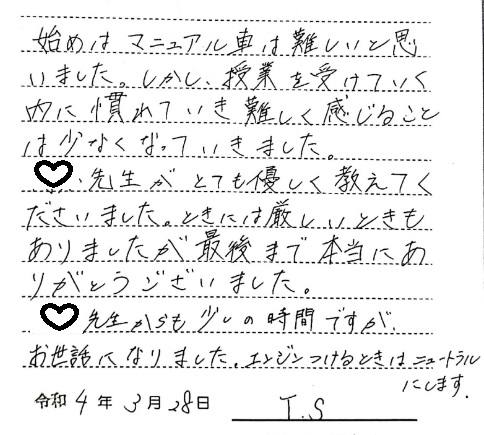 始めはマニュアル車は難しいと思
いました。しかし、授業を受けていく
内に慣れていき難しく感じること
は少なくなっていきました。
♡、先生がとても優しく教えてく
ださいました。ときには厳しいときも
ありましたが最後まで本当にあ
りがとうございました。
♡先生からも少しの時間ですが、
お世話になりました。エンジンつけるときはニュートラル
にします。
令和4年3月28日 T.S